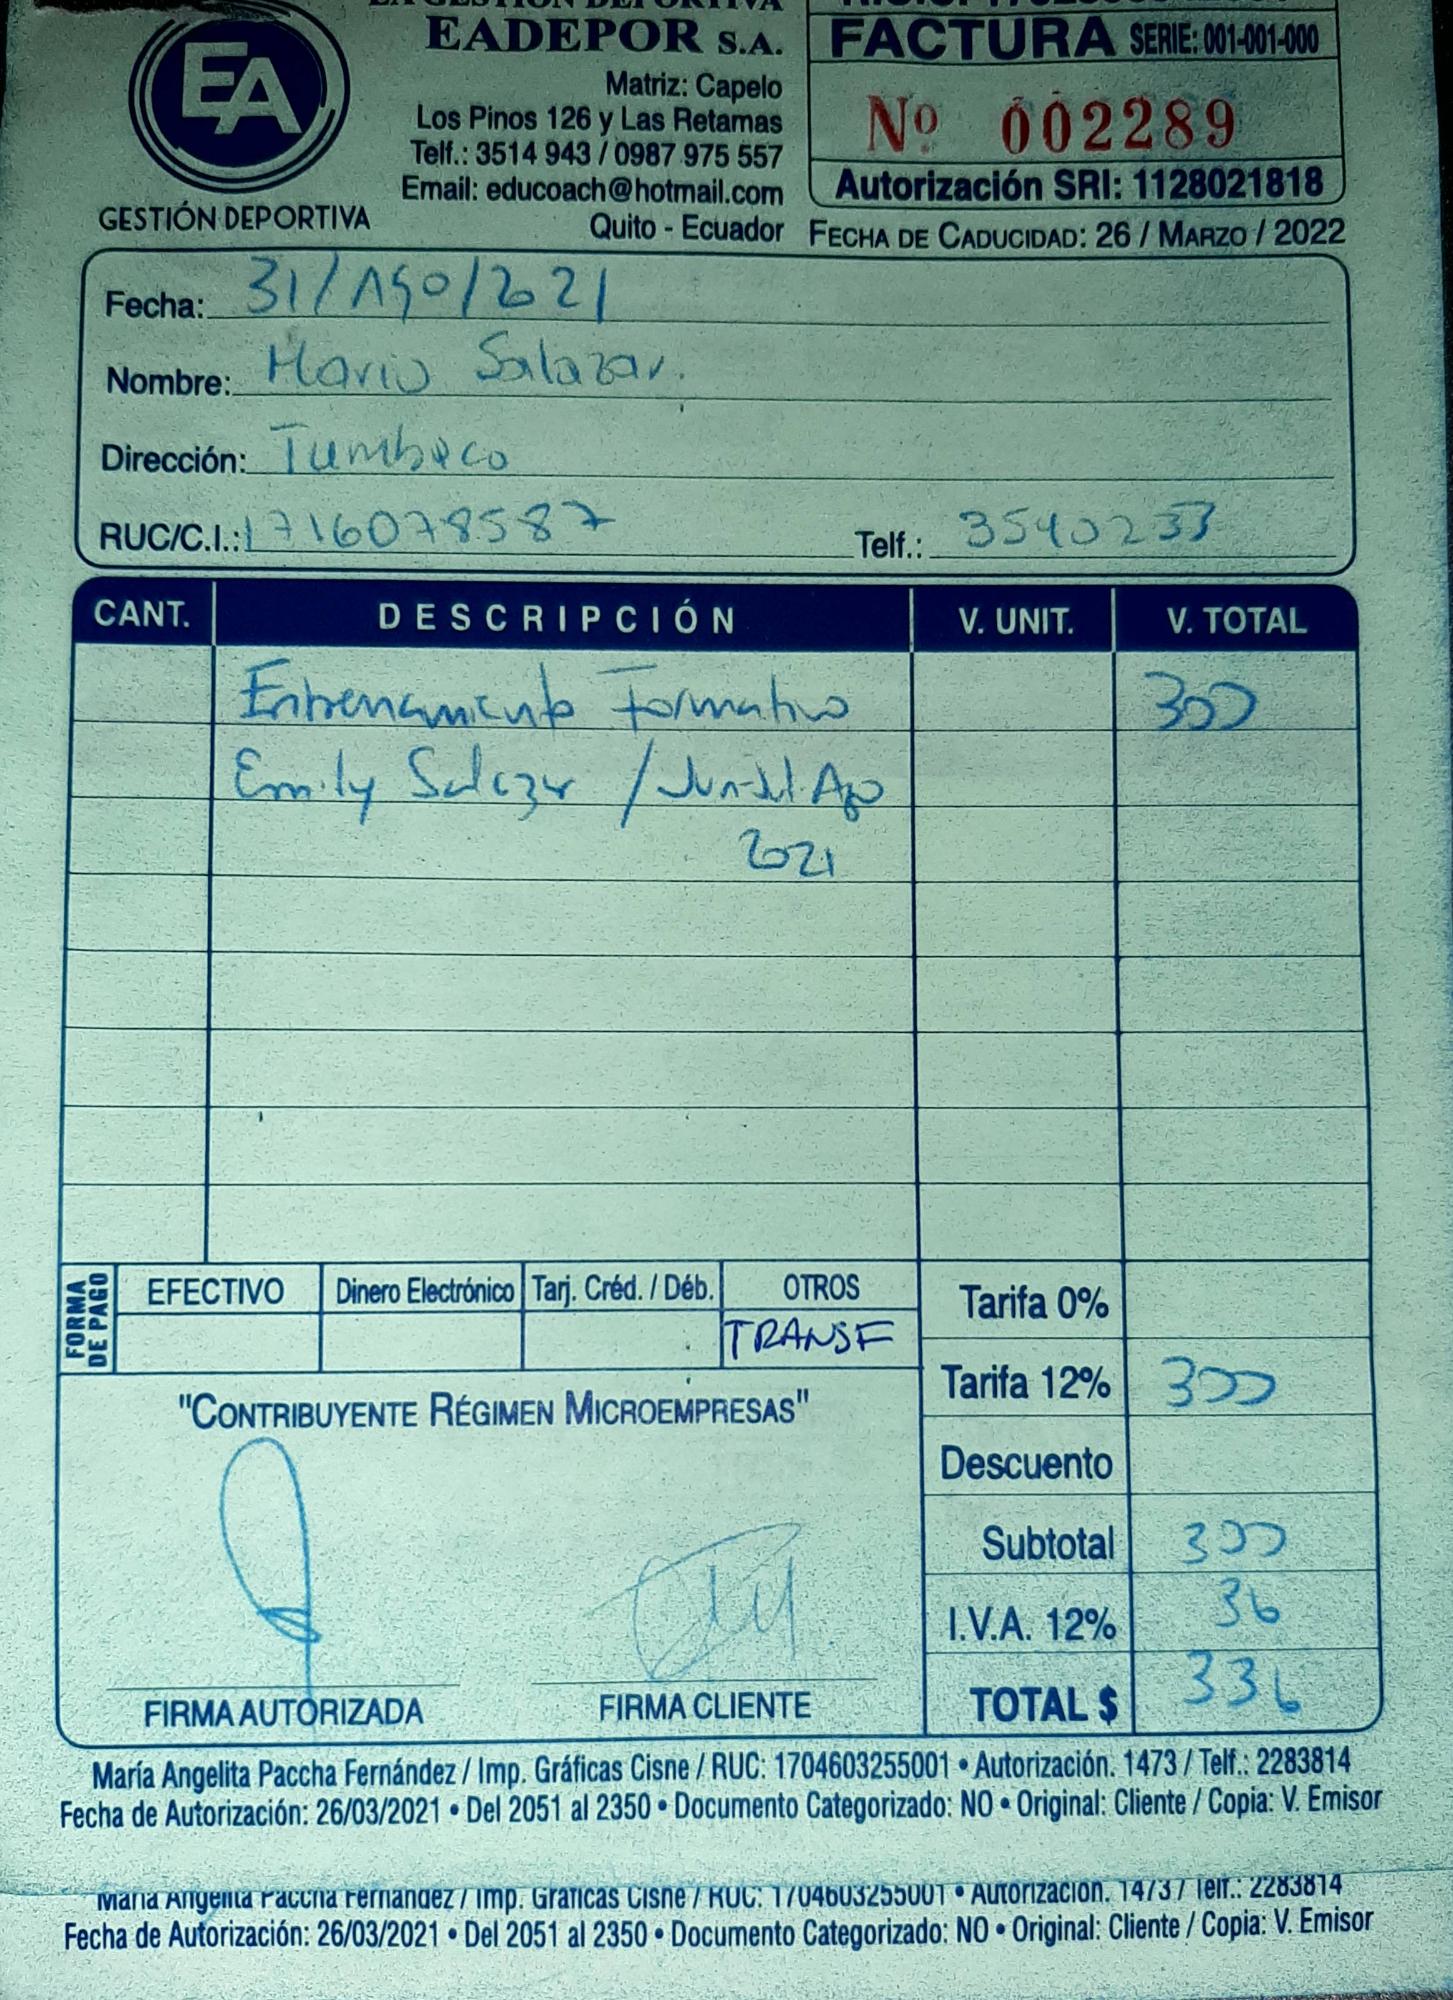 EADEPOR S.A.
Matriz: Capelo
Los Pinos 126 y Las Retamas
Telf.: 3514 943 / 0987 975 557
Email: educoach@hotmail.com
Quito - Ecuador
EA
GESTIÓN DEPORTIVA
FACTURA SERIE: 001-001-000
Nº 002289
Autorización SRI: 1128021818
FECHA DE CADUCIDAD: 26 / MARZO / 2022
Fecha: 31/Ago/2021
Nombre: Mario Salazar.
Dirección: Tumbaco
RUC/C.I.: 1716078587 Telf.: 3540233
CANT. DESCRIPCIÓN V. UNIT. V. TOTAL
Entrenamiento Formativo 300
Emily Salazar / Jun-Jul-Ago
2021
FORMA DE PAGO
EFECTIVO Dinero Electrónico Tarj. Créd. / Déb. OTROS
TRANSF
Tarifa 0%
Tarifa 12% 300
Descuento
Subtotal 300
I.V.A. 12% 36
TOTAL $ 336
"CONTRIBUYENTE RÉGIMEN MICROEMPRESAS"
FIRMA AUTORIZADA FIRMA CLIENTE
María Angelita Paccha Fernández / Imp. Gráficas Cisne / RUC: 1704603255001 • Autorización. 1473 / Telf.: 2283814
Fecha de Autorización: 26/03/2021 • Del 2051 al 2350 • Documento Categorizado: NO • Original: Cliente / Copia: V. Emisor
María Angelita Paccha Fernández / Imp. Gráficas Cisne / RUC: 1704603255001 • Autorización. 1473 / Telf.: 2283814
Fecha de Autorización: 26/03/2021 • Del 2051 al 2350 • Documento Categorizado: NO • Original: Cliente / Copia: V. Emisor